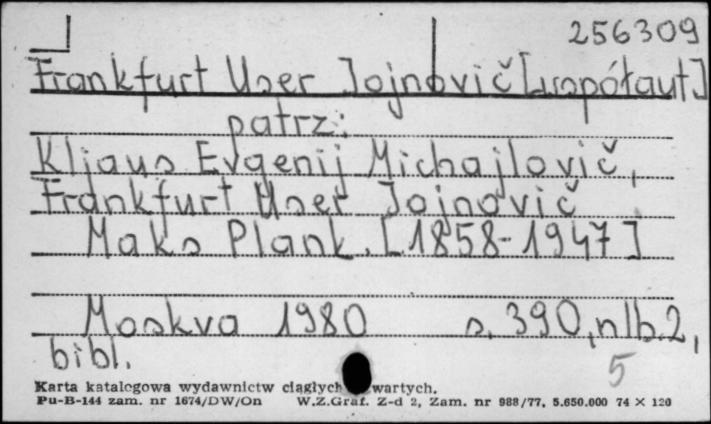 256309
Frankfurt User Jojnovič [współaut]
patrz:
Kljaus Evgenij Michajlovič,
Frankfurt User Jojnovič
Maks Plank. [1858-1947]
Moskva 1980 s. 390, nlb. 2,
bibl. 5
Karta katalogowa wydawnictw ciągłych wartych.
Pu-B-144 zam. nr 1674/DW/On W.Z.Graf. Z-d 2, Zam. nr 988/77, 5.650.000 74 × 120